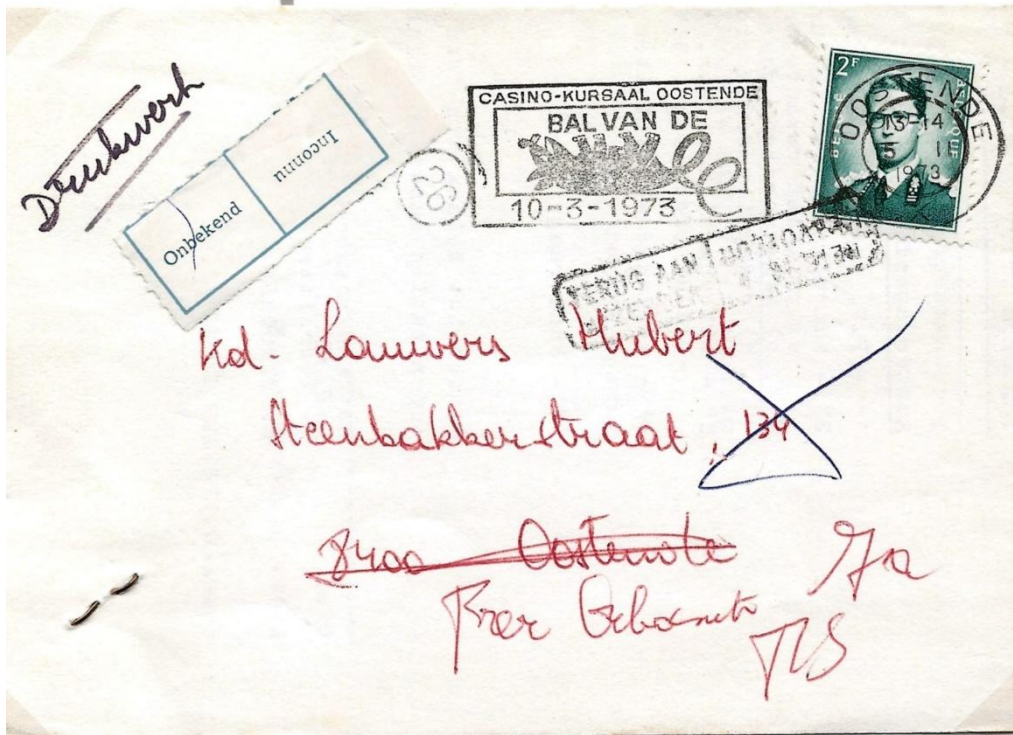 Drukwerk
Onbekend
Inconnu
26
CASINO-KURSAAL OOSTENDE
BAL VAN DE
10-3-1973
2F
BELGIE BELGIQUE
OOSTENDE
13-14
1973
TERUG AAN
Kd. Lauwers Hubert
Steenbakkerstraat, 134
8400 Oostende